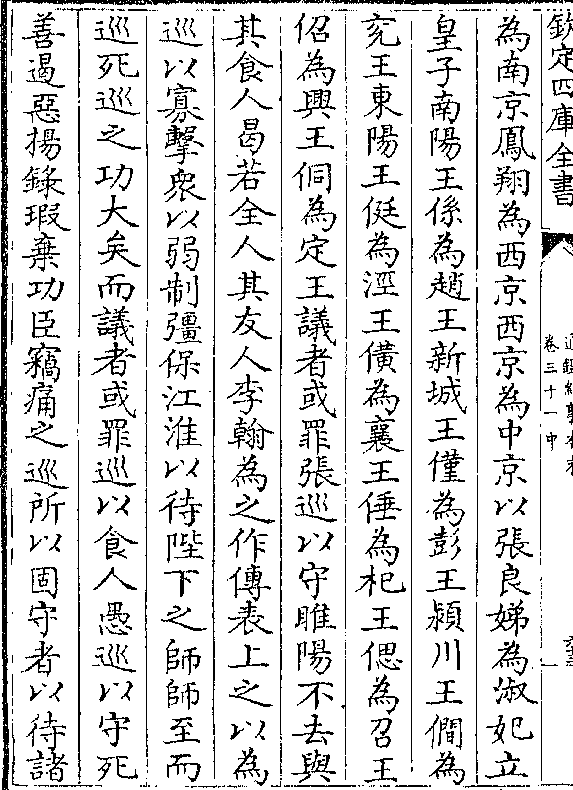 欽定四庫全書
通鑑紀事本末
卷三十一中
為南京鳳翔為西京西京為中京以張良娣為淑妃立
皇子南陽王係為趙王新城王僅為彭王潁川王僩為
兗王東陽王侹為涇王僙為襄王倕為杞王偲為召王
佋為興王侗為定王議者或罪張巡以守睢陽不去與
其食人曷若全人其友人李翰為之作傳表上之以為
巡以寡擊衆以弱制彊保江淮以待陛下之師師至而
巡死巡之功大矣而議者或罪巡以食人愚巡以守死
善遏惡揚錄瑕棄功臣竊痛之巡所以固守者以待諸